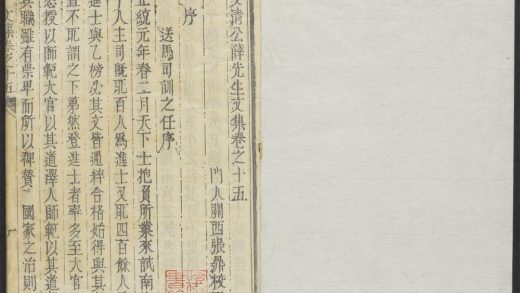 文清公薛先生文集卷之十五
門人關西張鼎校
序
送馬司訓之任序
正統元年春二月天下士抱負所業來試南
人主司既取百人為進士又取四百餘人
進士與乙榜必其文皆通粹合格始得與其
直不取謂之下第然登進士者率多至大官
授以師範大官以其道澤人師範以其道
其職雖有崇卑而所以裨贊 國家之治則
文集卷之十五